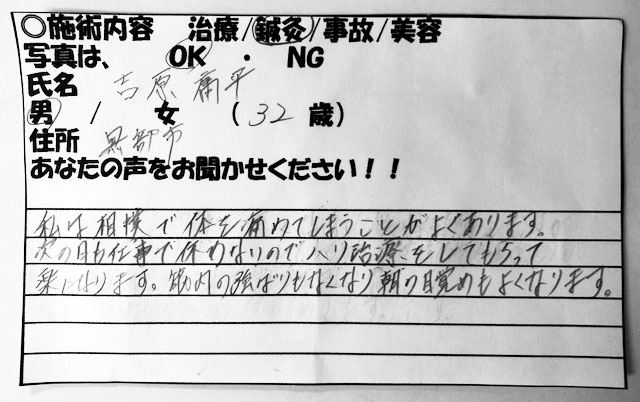 ○施術内容 治療/鍼灸/事故/美容
写真は、 OK ・ NG
氏名 吉原 庸平
男 / 女 (32 歳)
住所 黒部市
あなたの声をお聞かせください！！
私は相撲で体を痛めてしまうことがよくあります。
次の日も仕事で休めないのでハリ治療をしてもらって
楽になります。筋肉の強ばりもなくなり朝の目覚めもよくなります。